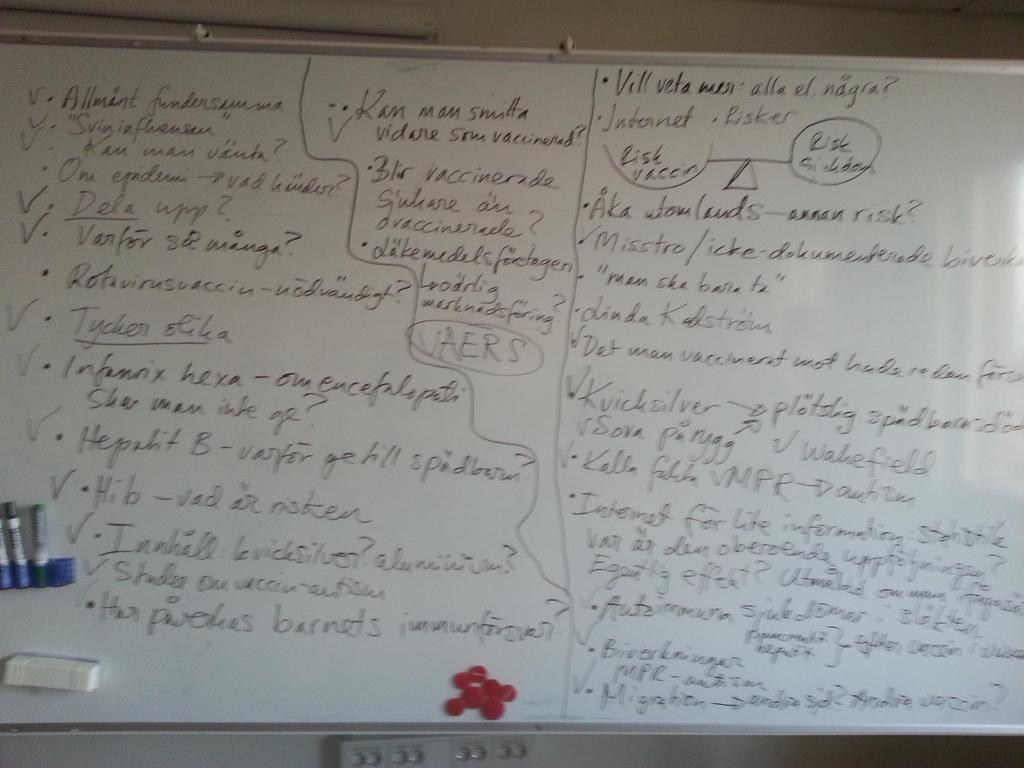 v • Allmänt fundersamma
v • "Svininfluensan"
v Kan man vänta?
• Om epidemi → vad händer?
v • Dela upp?
v • Varför så många?
• Rotavirusvaccin - nödvändigt?
v • Tycker olika
v • Infanrix hexa - om encefalopati
Ska man inte ge?
v • Hepatit B - varför ge till spädbarn?
v • Hib - vad är risken
v • Innehåll: kvicksilver? aluminium?
v Studier om vaccin-autism
• Hur påverkas barnets immunförsvar?
• Kan man smitta
v vidare som vaccinerad?
• Blir vaccinerade
sjukare än
ovaccinerade?
• Läkemedelsföretagen
↳ oärlig
marknadsföring?
VAERS
• Vill veta mer: alla el. några?
• Internet • Risker
Risk
vaccin
Risk
sjukdom
• Åka utomlands - annan risk?
v Misstro/icke-dokumenterade
• "man ska bara ta"
• Linda Karlström
v Det man vaccinerat mot hade redan
v Kvicksilver → plötslig
v Sova på rygg v Wakefield
v • Kalla fakta v MPR → autism
• Internet för lite information: statistik
Var är den oberoende uppföljningen?
Egentlig effekt? Utmålad om man
v • Autoimmuna sjukdomar i släkten
v • Biverkningar } efter vaccin i
MPR - autism
v • Migration → andra sjd? Andra vaccin?